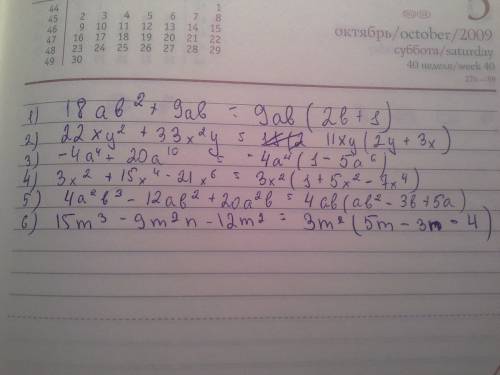 1
44 2 3 4 5 6 7 8
45 9 10 11 12 13 14 15
46 16 17 18 19 20 21 22
47 23 24 25 26 27 28 29
48 30
49
октябрь/october/2009
суббота/saturday
40 неделя/week 40
1) 18ab² + 9ab = 9ab(2b+1)
2) 22xy² + 33x²y = 11xy(2y+3x)
3) -4a⁴ + 20a¹⁰ = -4a⁴(1-5a⁶)
4) 3x² + 15x⁴ - 21x⁶ = 3x²(1+5x²-7x⁴)
5) 4a²b³ - 12ab² + 20a²b = 4ab(ab²-3b+5a)
6) 15m³ - 9m²n - 12m² = 3m²(5m-3n-4)